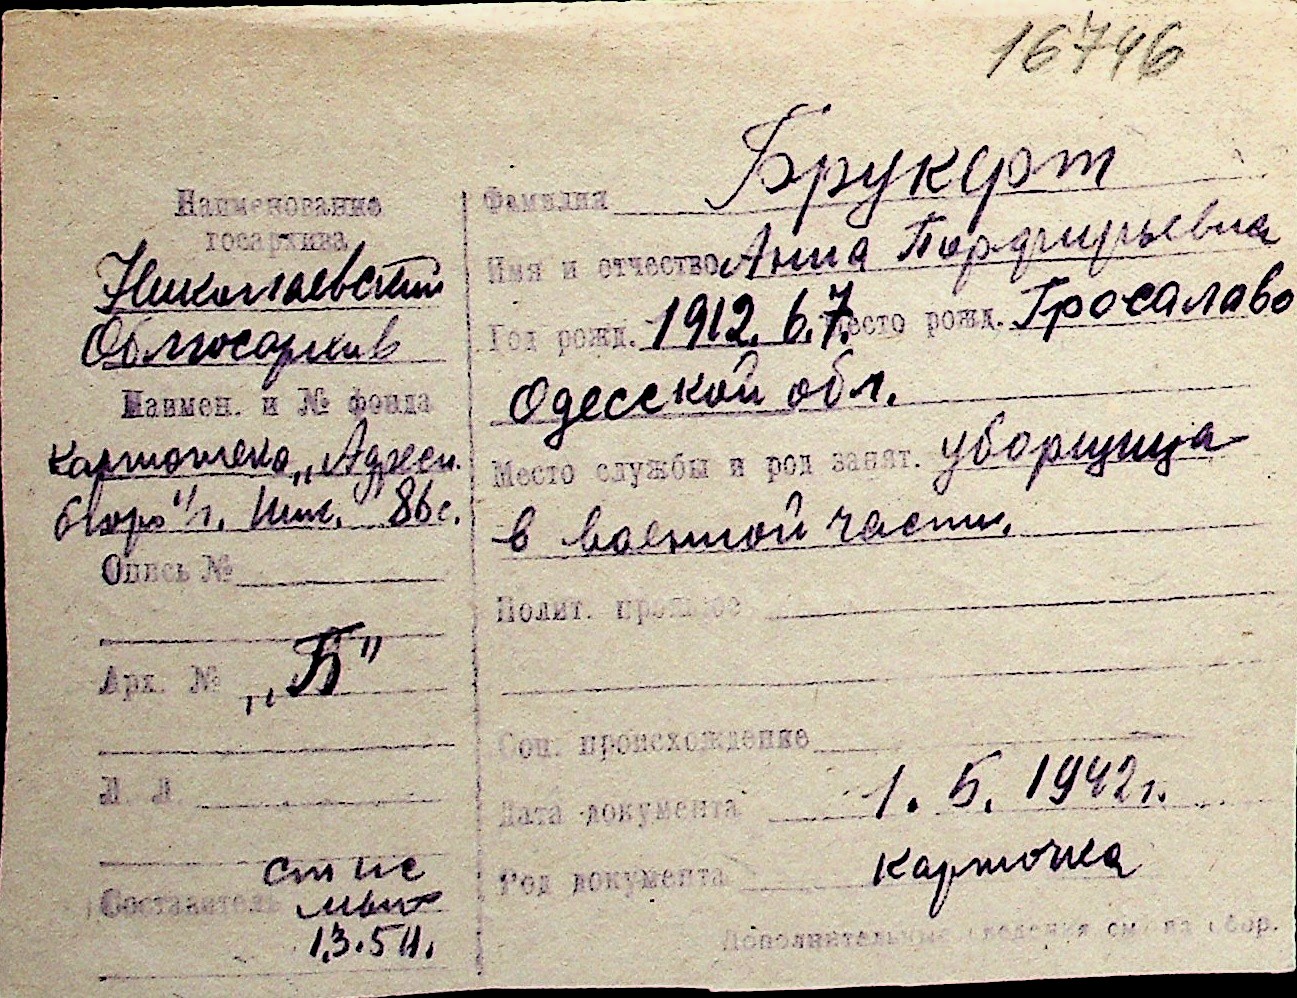 16746
Наименование
госархива
Николаевский
Облгосархив
Наимен. и № фонда
Картотека „Адресн.
бюро" г. Ник. 86 с.
Опись №
Арх. № „Б"
Л. Л.
Составитель
1.3.51.
Фамилия Брукерт
Имя и отчество Анна Порфирьевна
Год рожд. 1912. 6. 7. Место рожд. Гросалаво
Одесской обл.
Место службы и род занят. уборщица
в военной части.
Полит. прошлое
Соц. происхождение
Дата документа 1. 5. 1942 г.
Род документа карточка
Дополнительные сведения см. на обор.